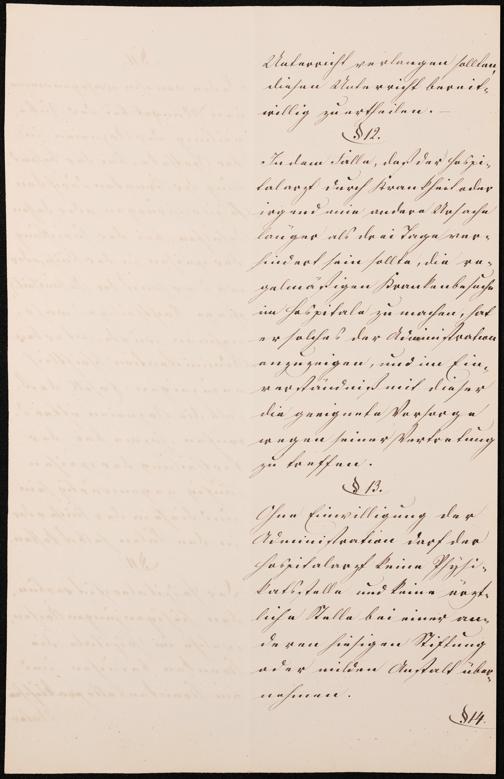 Unterricht verlangen sollten,
diesen Unterricht bereit-
willig zu ertheilen. —
§ 12.
In dem Falle, daß der Hospi-
talarzt durch Krankheit oder
irgend eine andere Ursache
länger als drei Tage ver-
hindert sein sollte, die re-
gelmäßigen Krankenbesuche
im Hospitale zu machen, hat
er solches der Administration
anzuzeigen, und im Ein-
verständniß mit dieser
die geeignete Vorsorge
wegen seiner Vertretung
zu treffen.
§ 13.
Ohne Einwilligung der
Administration darf der
Hospitalarzt keine Physi-
katsstelle und keine ärzt-
liche Stelle bei einer an-
deren hiesigen Stiftung
oder milden Anstalt über-
nehmen.
§ 14.